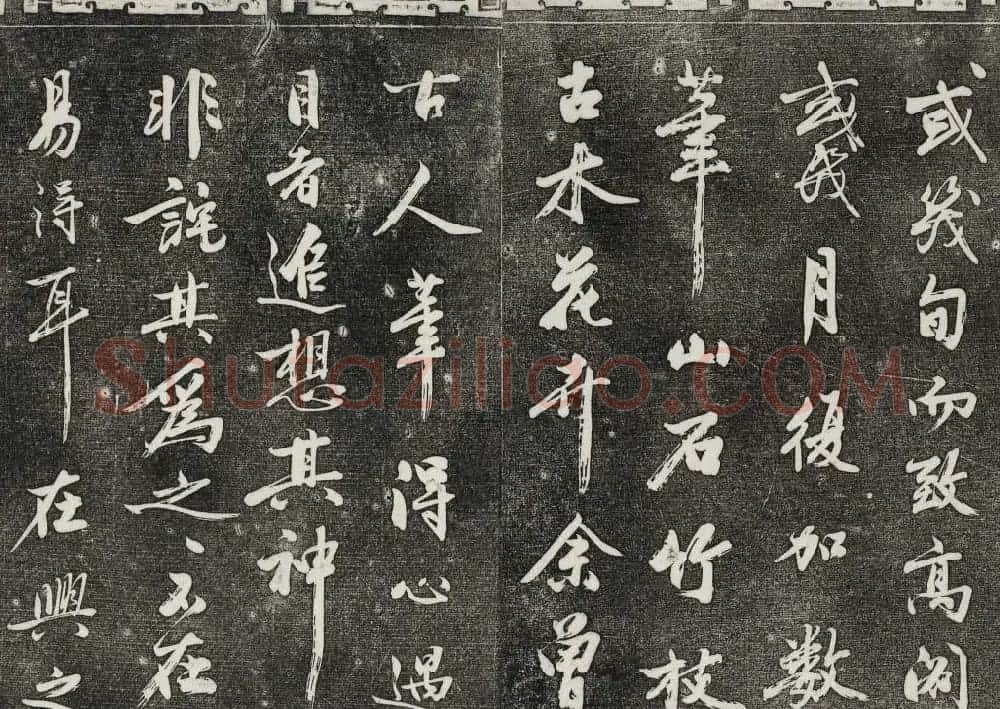 或幾旬而致高閣
或幾月後加數
筆山石竹枝
古木花卉余曾
古人筆得心遇
目者追想其神
非詫其為之之不在
易得耳在興之
Shufaziliao.COM